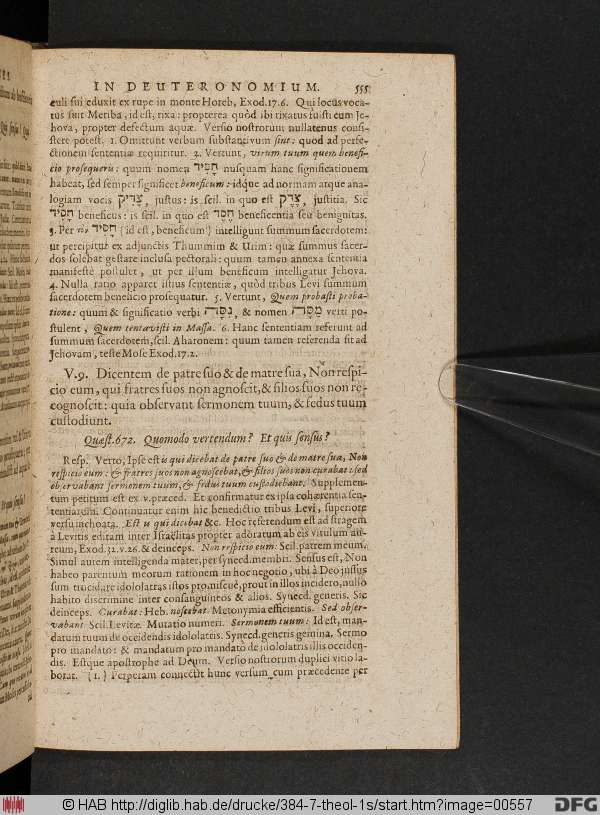 IN DEUTERONOMIUM. 555
culi sui eduxit ex rupe in monte Horeb, Exod.17.6. Qui locus voca-
tus fuit Meriba, id est, rixa: propterea quòd ibi rixatus fuisti cum Je-
hova, propter defectum aquæ. Versio nostrorum nullatenus consi-
stere potest. 1. Omittunt verbum substantivum sint: quod ad perfe-
ctionem sententiæ requiritur. 2. Vertunt, virum tuum quem benefi-
cio prosequeris: quum nomen חסיד nusquam hanc significationem
habeat, sed semper significet beneficum: idque ad normam atque ana-
logiam vocis צדיק, justus: is scil. in quo est צדק, justitia. Sic
חסיד beneficus: is scil. in quo est חסד beneficentia seu benignitas.
3. Per חסיד {id est, beneficum} intelligunt summum sacerdotem:
ut percipitur ex adjunctis Thummim & Urim: quæ summus sacer-
dos solebat gestare inclusa pectorali: quum tamen annexa sententia
manifestè postulet, ut per illum beneficum intelligatur Jehova.
4. Nulla ratio apparet istius sententiæ, quòd tribus Levi summum
sacerdotem beneficio prosequatur. 5. Vertunt, Quem probasti proba-
tione: quum & significatio verbi נסה, & nomen מסה verti po-
stulent, Quem tentavisti in Massa. 6. Hanc sententiam referunt ad
summum sacerdotem, scil. Aharonem: quum tamen referenda sit ad
Jehovam, teste Mose Exod.17.2.
V.9. Dicentem de patre suo & de matre sua, Non respi-
cio eum, qui fratres suos non agnoscit, & filios suos non re-
cognoscit: quia observant sermonem tuum, & fedus tuum
custodiunt.
Quæst.672. Quomodo vertendum? Et quis sensus?
Resp. Verto, Ipse est is qui dicebat de patre suo & de matre sua, Non
respicio eum: & fratres suos non agnoscebat, & filios suos non curabat: sed
observabant sermonem tuum, & fedus tuum custodiebant. Supplemen-
tum petitum est ex v.præced. Et confirmatur ex ipsa cohærentia sen-
tentiarum. Continuatur enim hic benedictio tribus Levi, superiore
versu inchoata. Est is qui dicebat &c. Hoc referendum est ad stragem
à Levitis editam inter Israëlitas propter adoratum ab eis vitulum au-
reum, Exod.32.v.26. & deinceps. Non respicio eum: Scil. patrem meum.
Simul autem intelligenda mater, per synecd. membri. Sensus est, Non
habeo parentum meorum rationem in hoc negotio, ubi à Deo jussus
sum trucidare idololatras istos promiscuè, prout in illos incidero, nullo
habito discrimine inter consanguineos & alios. Synecd. generis. Sic
deinceps. Curabat: Heb. noscebat. Metonymia efficientis. Sed obser-
vabant Scil. Levitæ. Mutatio numeri. Sermonem tuum: Id est, man-
datum tuum de occidendis idololatris. Synecd. generis gemina, Sermo
pro mandato: & mandatum pro mandato de idololatris illis occiden-
dis. Estque apostrophe ad Deum. Versio nostrorum duplici vitio la-
borat. {1.} Perperam connectit hunc versum cum præcedente per
© HAB http://diglib.hab.de/drucke/384-7-theol-1s/start.htm?image=00557
DFG